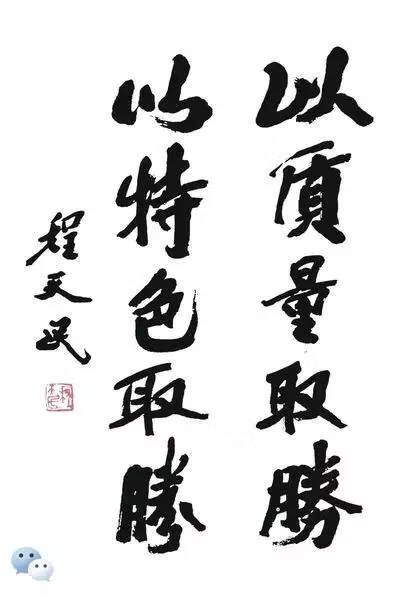 以质量取勝
以特色取勝
程天民